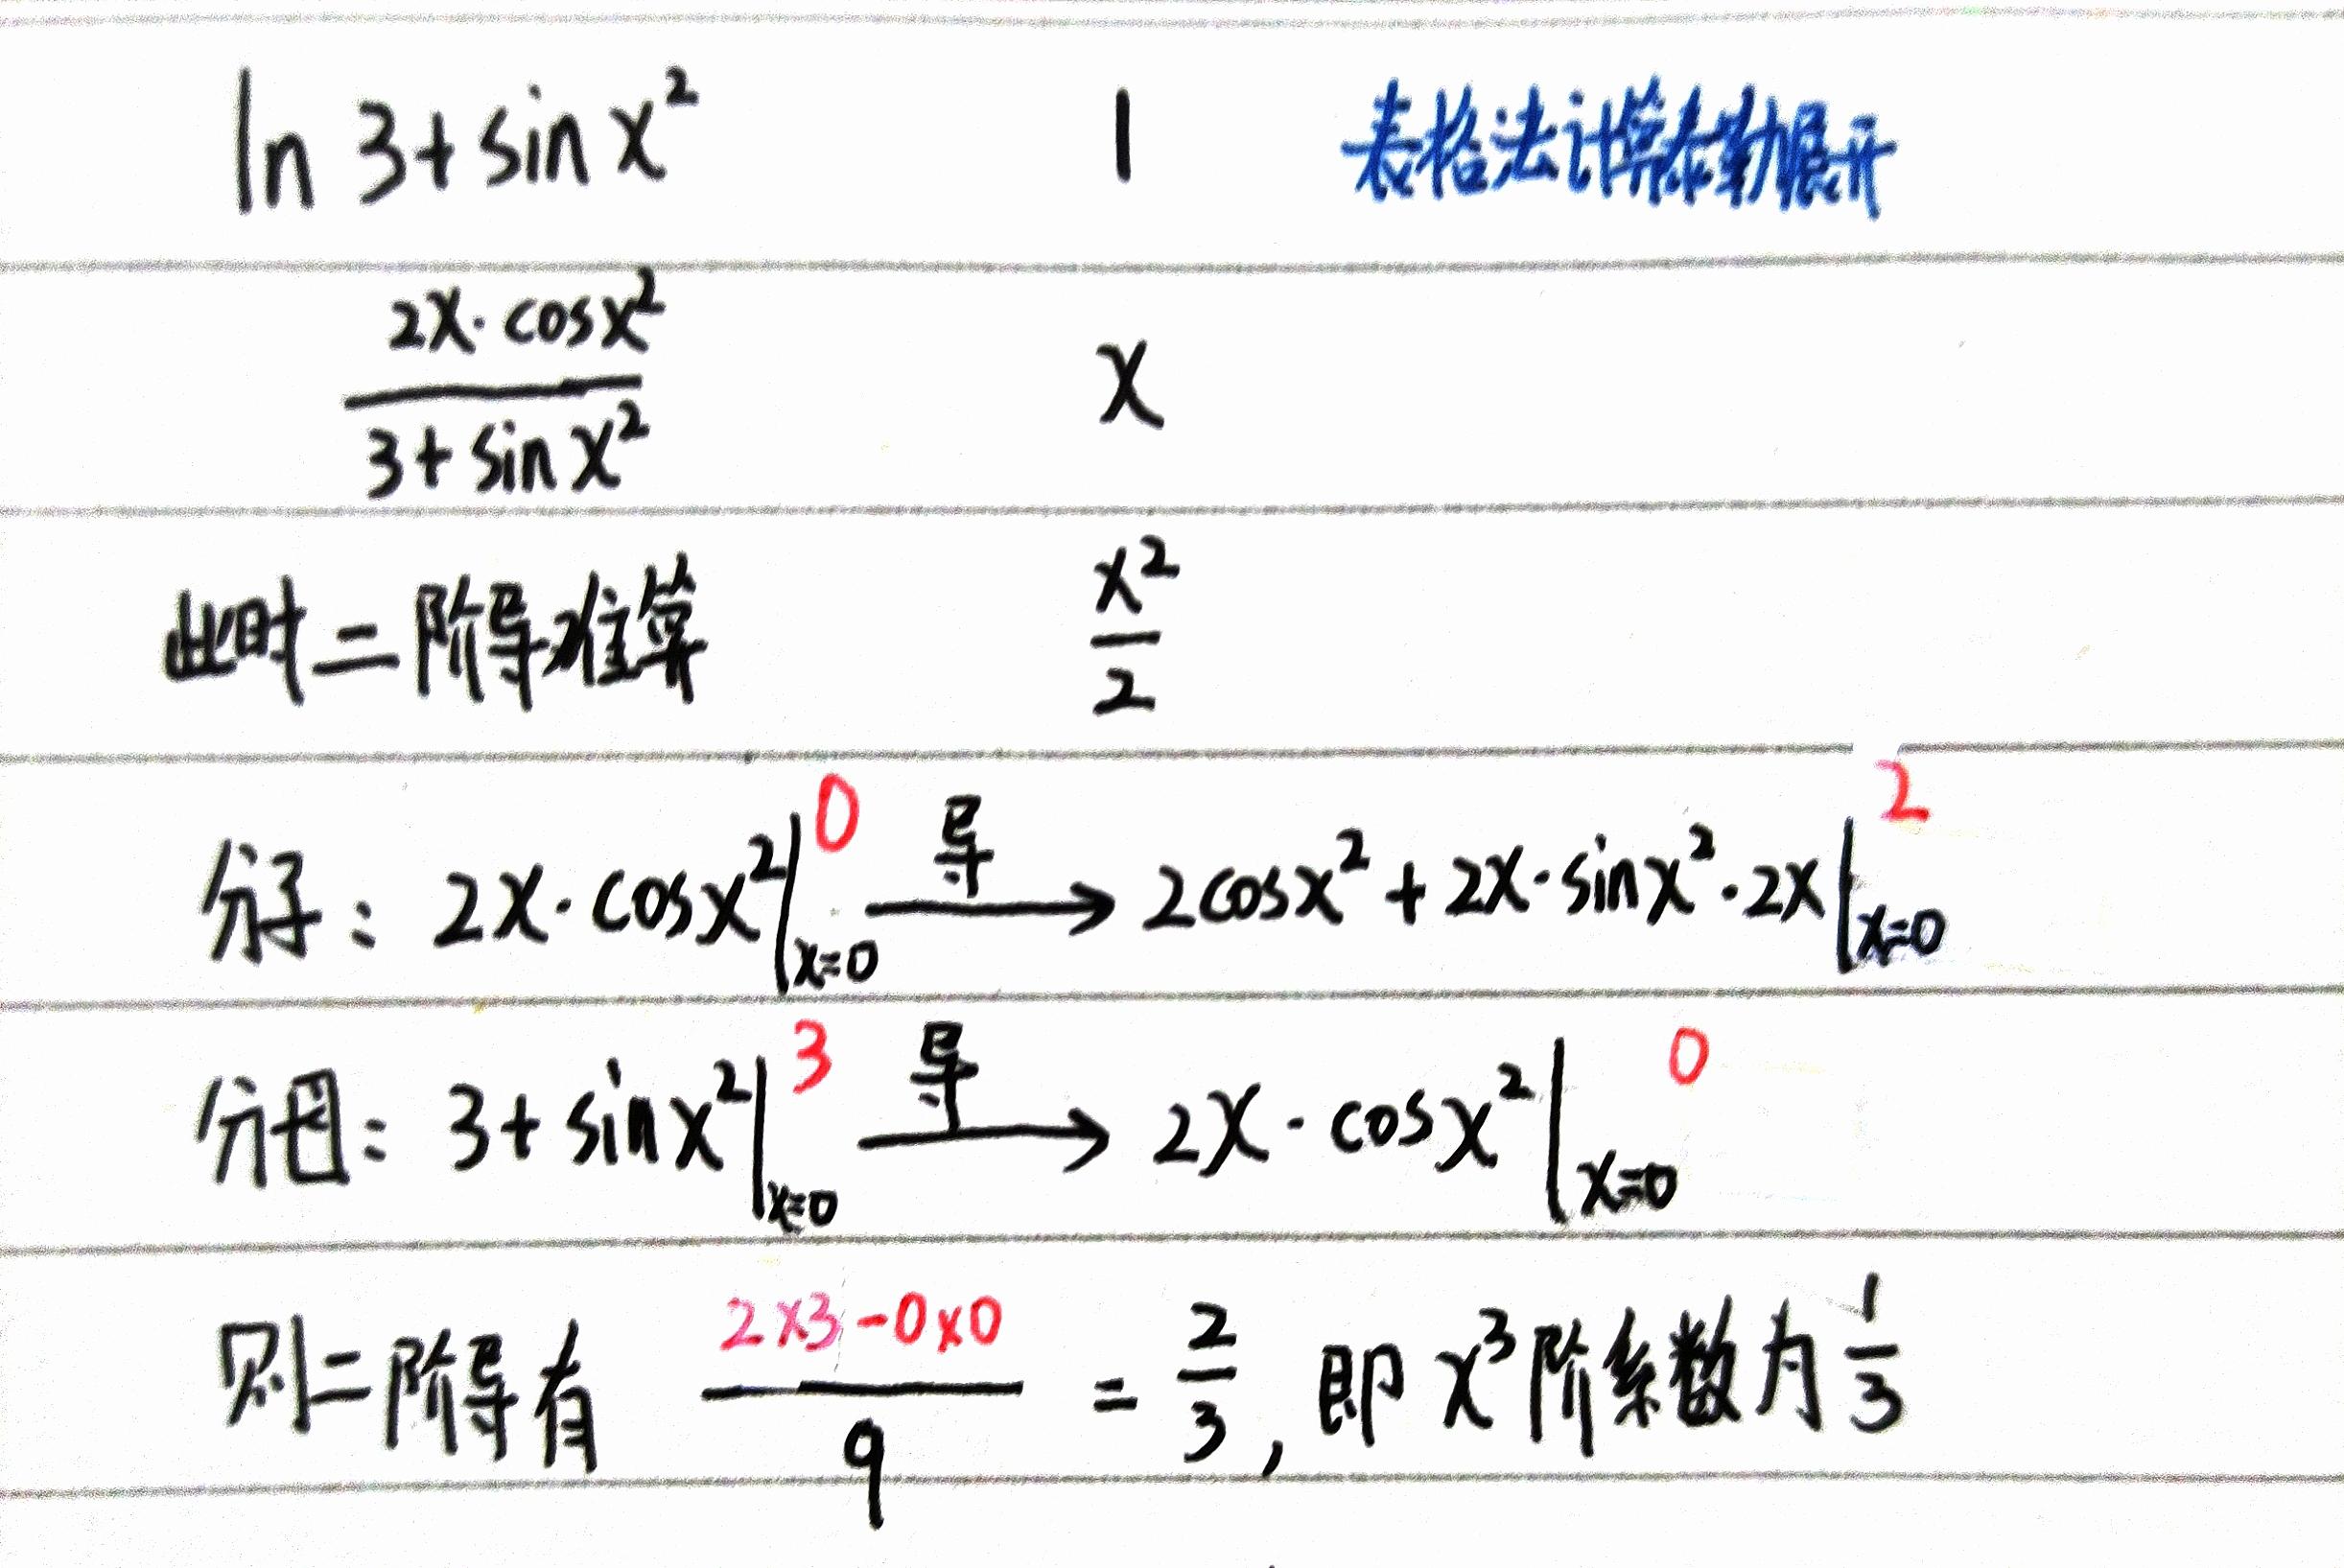 ln 3+sin x² 1 表格法计算泰勒展开
2x·cosx² / 3+sin x² x
此时二阶导难算 x²/2
分子: 2x·cosx²|x=0 0 导→ 2cosx²+2x·sinx²·2x|x=0 2
分母: 3+sinx²|x=0 3 导→ 2x·cosx²|x=0 0
则二阶导有 2×3-0×0 / 9 = 2/3, 即 x³阶系数为 1/3